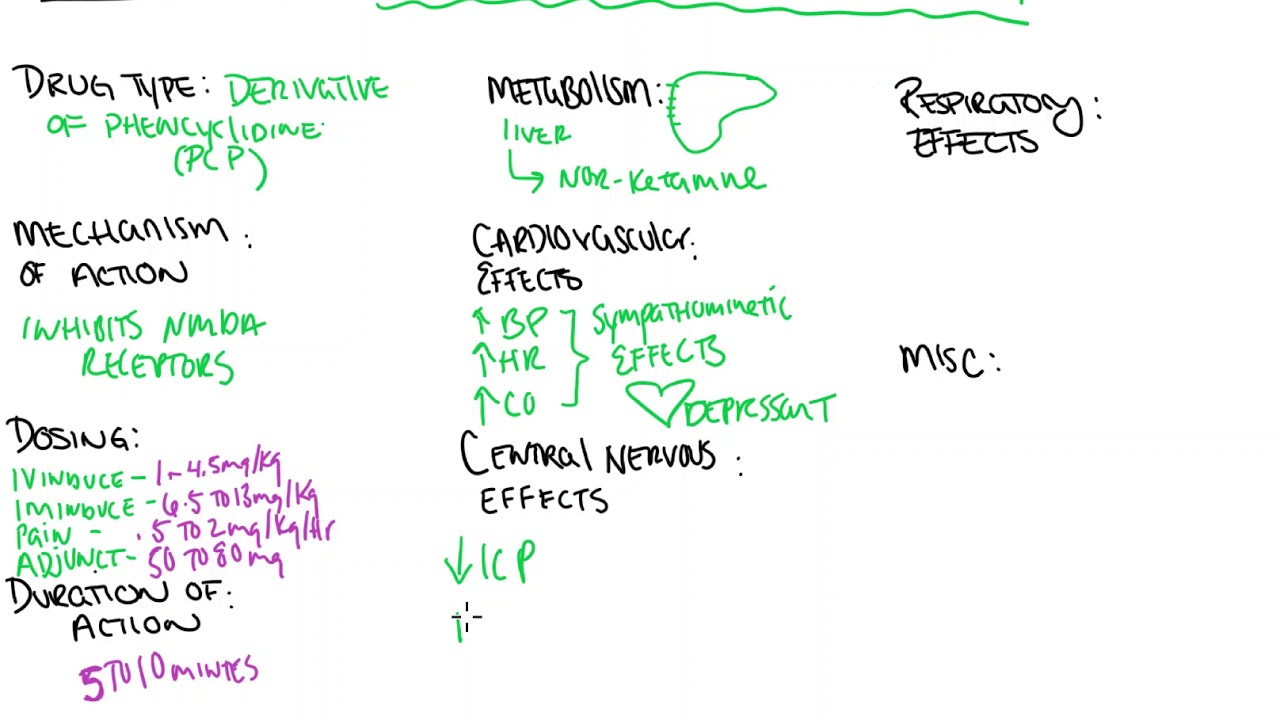 DRUG TYPE: DERIVATIVE
OF PHENCYCLIDINE
(PCP)
MECHANISM:
OF ACTION
INHIBITS NMDA
RECEPTORS
DOSING:
IV INDUCE - 1-4.5mg/kg
IM INDUCE - 6.5 TO 13mg/kg
PAIN - .5 TO 2mg/kg/Hr
ADJUNCT - 50 TO 80 mg
DURATION OF:
ACTION
5 TO 10 MINTES
METABOLISM:
LIVER
↳ NOR-KETAMINE
CARDIOVASCULAR:
EFFECTS
↑ BP
↑ HR
↑ CO
SYMPATHOMIMETIC
EFFECTS
DEPRESSANT
CENTRAL NERVOUS:
EFFECTS
↓ ICP
RESPIRATORY:
EFFECTS
MISC: